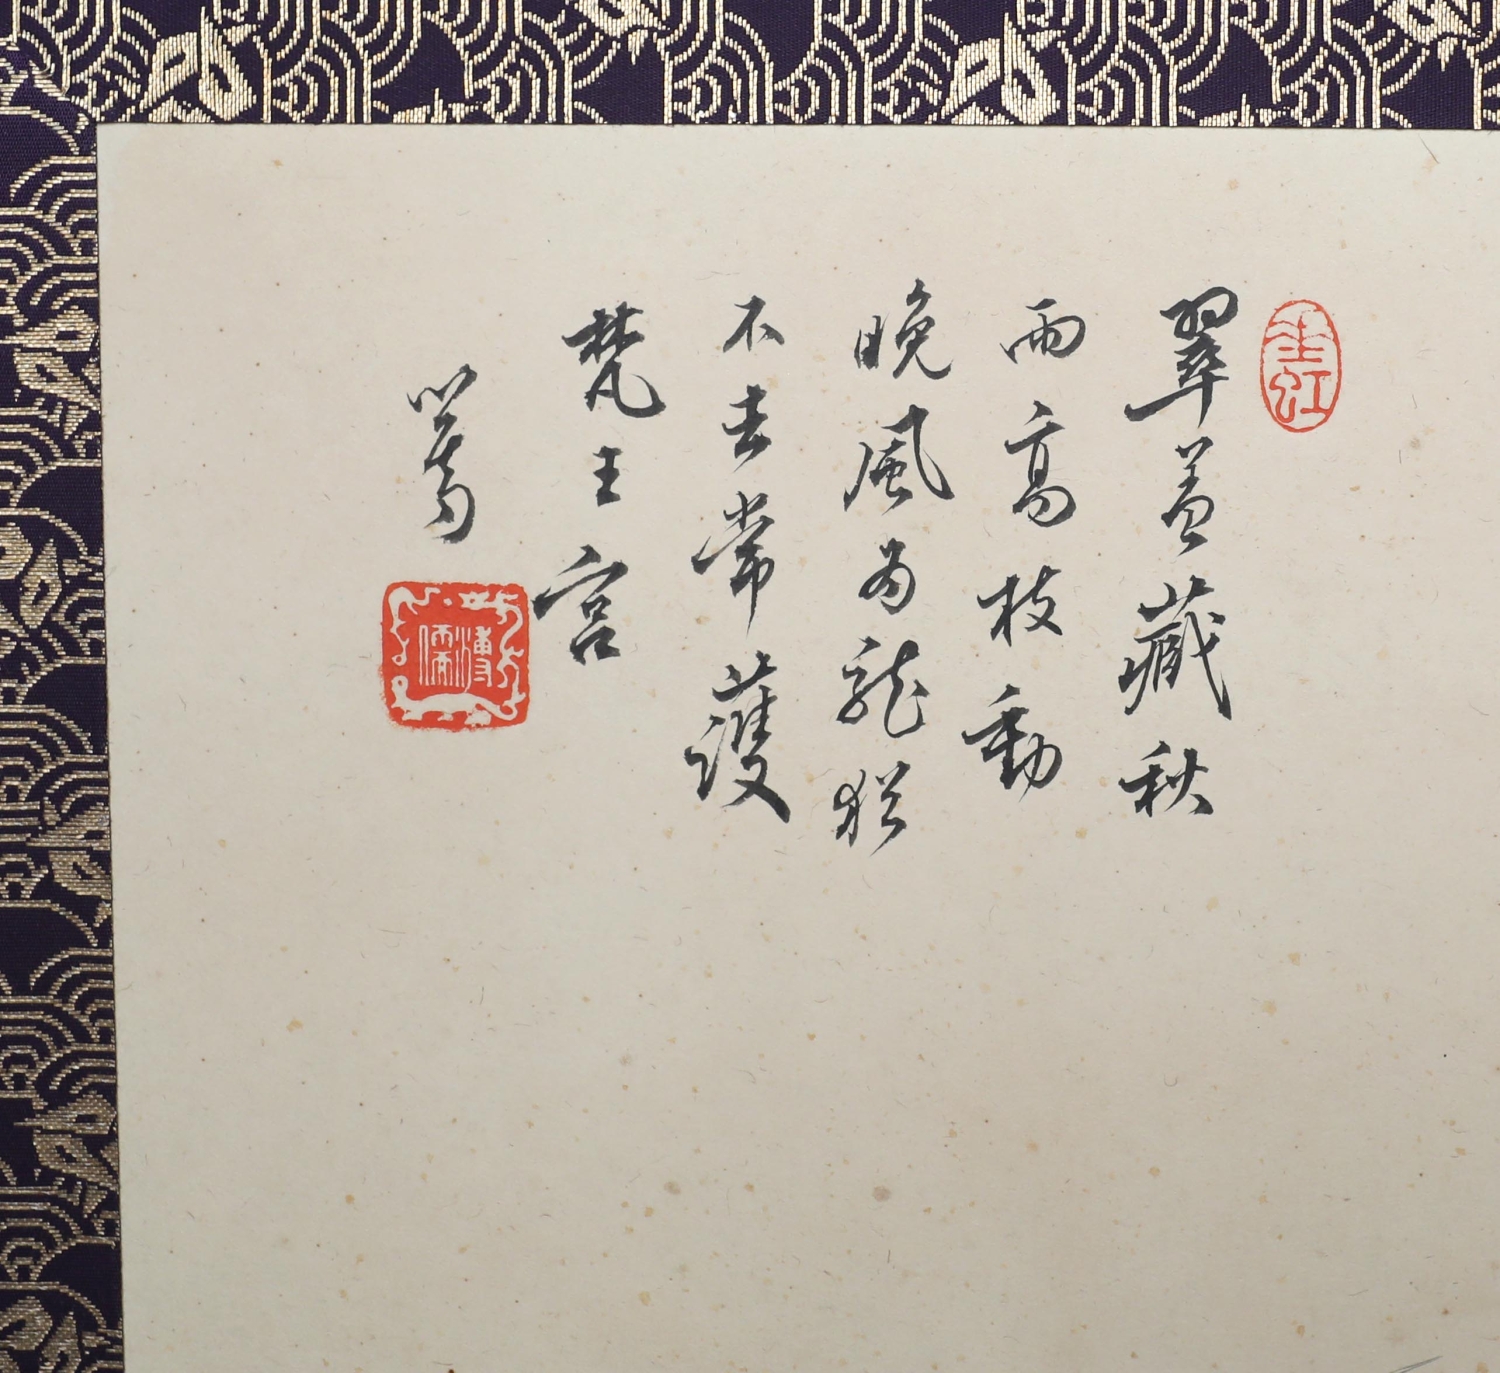 翠蓋藏秋
雨高枝動
晚風為龍猶
不去常護
梵王宮
溥儒